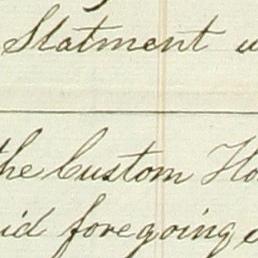 Statment
the Custom
foregoing